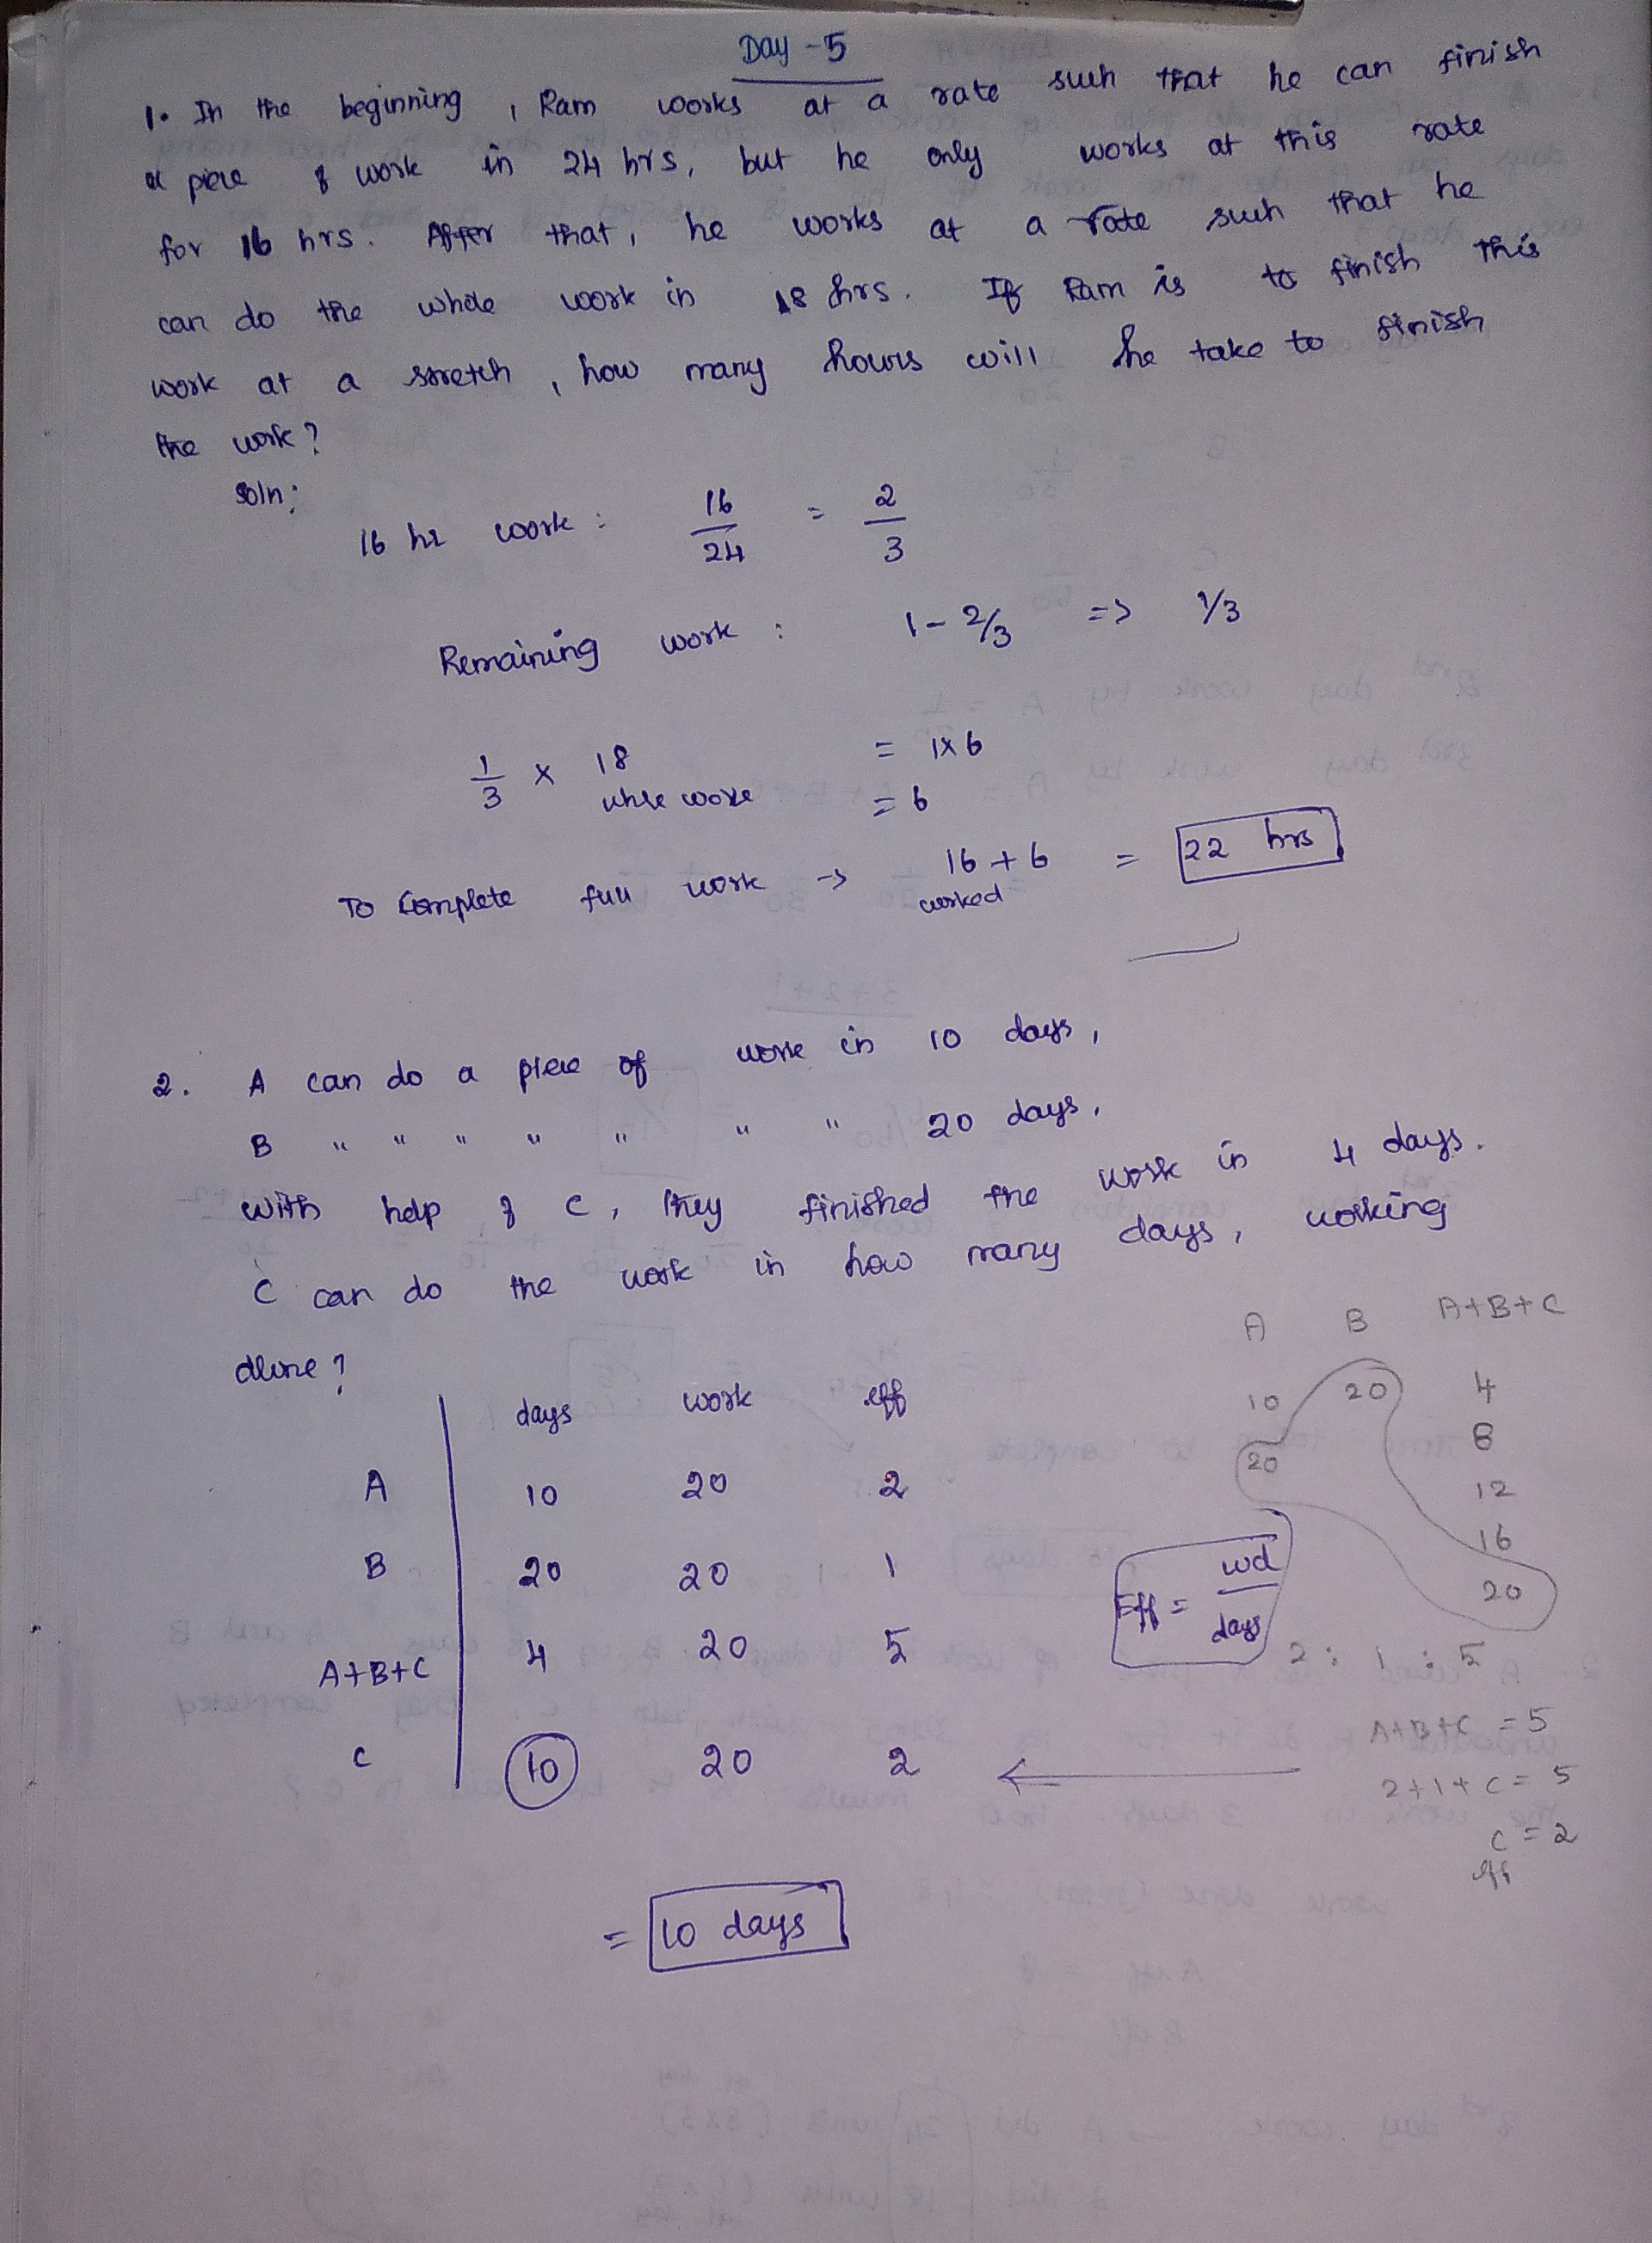 Day - 5
1. In the beginning, Ram works at a rate such that he can finish
a piece of work in 24 hrs, but he only works at this rate
for 16 hrs. After that, he works at a rate such that he
can do the whole work in 18 hrs. If Ram is to finish this
work at a stretch, how many hours will he take to finish
the work?
Soln:
16 hr work : 16/24 = 2/3
Remaining work : 1 - 2/3 => 1/3
1/3 x 18 = 1x6
whole work = 6
To Complete full work -> 16 + 6 = 22 hrs
worked
2. A can do a piece of work in 10 days,
B " " " " " " " 20 days,
with help of C, they finished the work in 4 days.
C can do the work in how many days, working
alone?
A B A+B+C
10 20 4
20 8
12
16
20
2 : 1 : 5
A+B+C = 5
2+1+C = 5
C = 2
eff
days work eff
A 10 20 2
B 20 20 1
A+B+C 4 20 5
C 10 20 2 ←
Eff = wd/days
= 10 days